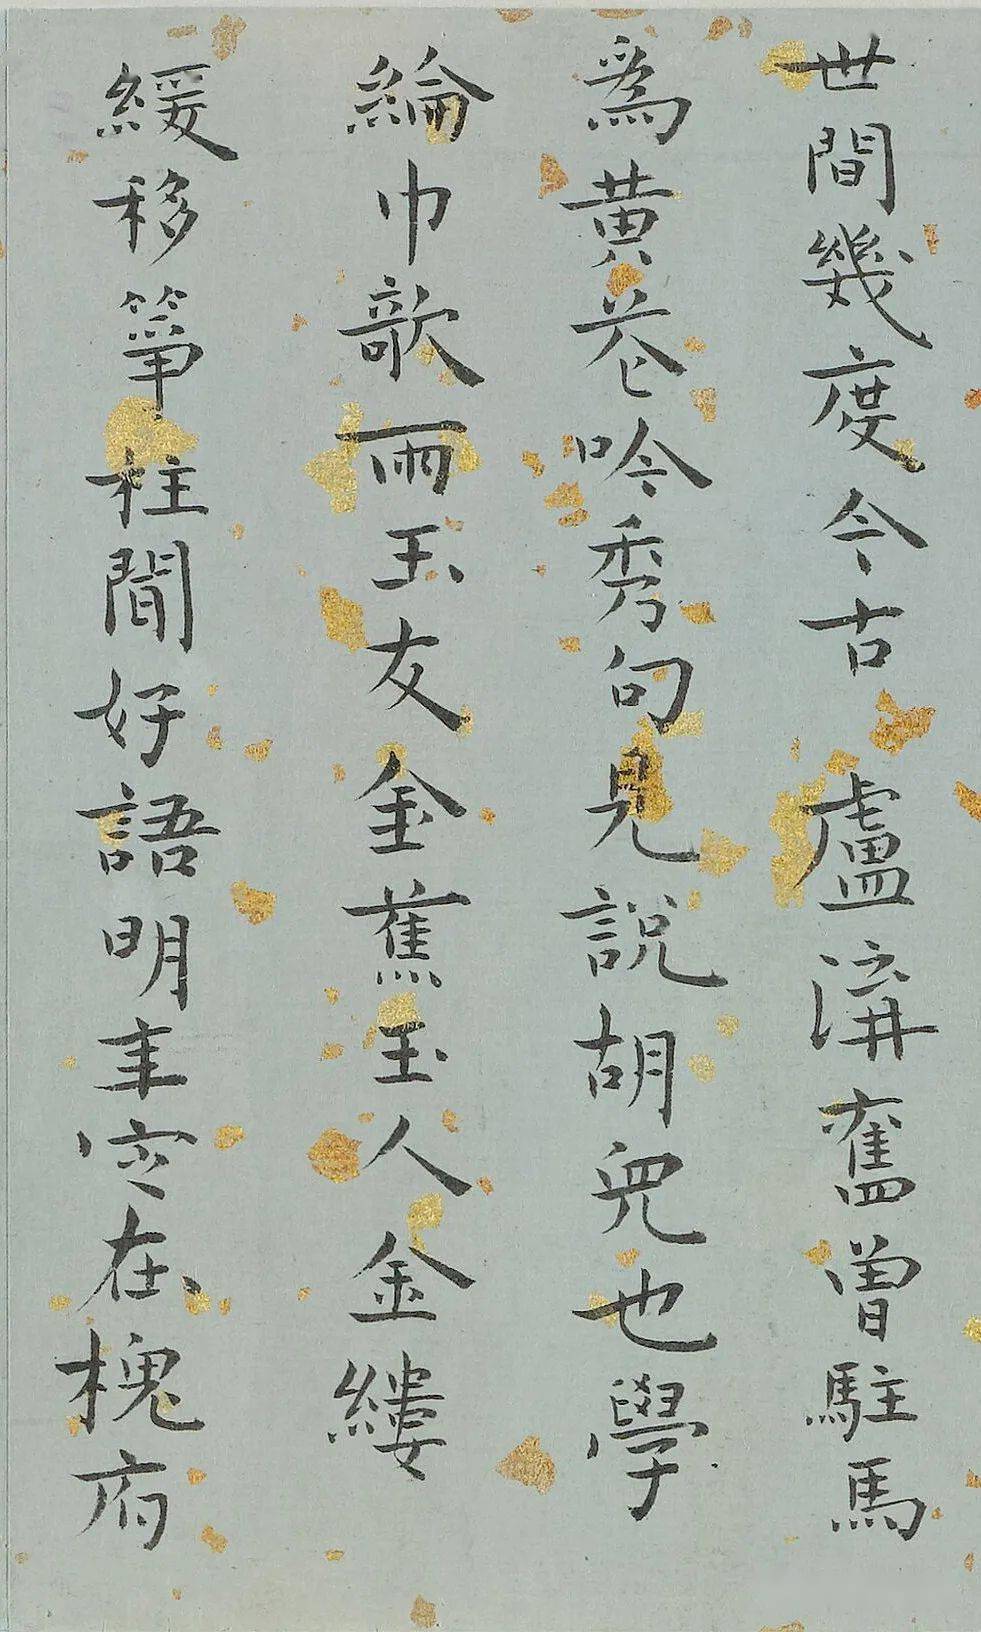 世間幾度今古　盧溝舊曾駐馬
為黄花吟秀句見說胡兒也學
綸巾欹雨玉友金蕉玉人金縷
緩移箏柱聞好語明年定在槐府